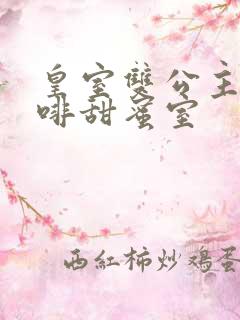 皇室雙公主
啡甜蜜室
西紅柿炒鷄蛋